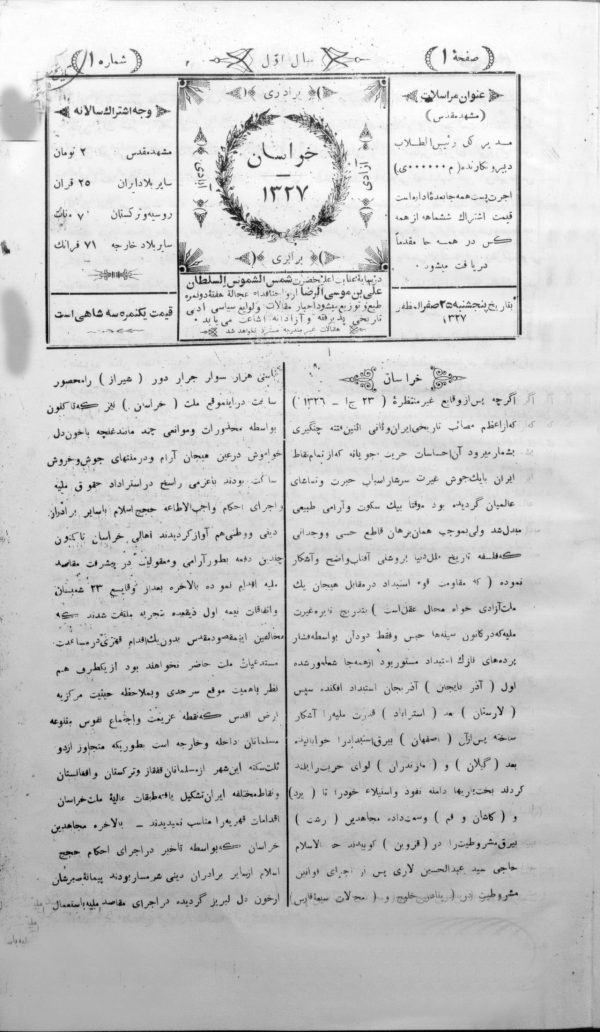 صفحهٔ ۱
سال اوّل
شماره ۱
عنوان مراسلات
(مشهد مقدس)
مدیر کل رئیس الطلاب
دبیر و نگارنده (م ۰۰۰۰۰۰ ی)
اجرت پست همه جا بعهدهٔ اداره است
قیمت اشتراك ششماهه از همه
کس در همه جا مقدماً
دریافت میشود
بتاریخ پنجشنبه ۲۵ صفر المظفر
۱۳۲۷
برادری
آزادی
خراسان
۱۳۲۷
آزادی
برابری
در سایهٔ عنایت اعلیحضرت شمس الشموس السلطان
علی بن موسی الرضا ارواحنا فداه عجالة هفتهٔ دو نمره
طبع و توزیع میشود اخبار مقالات و لوایح سیاسی ادبی
تاریخی پذیرفته و آزادانه اشاعت می یابد
مقالات غیر مندرجه مسترد نخواهد شد
وجه اشتراك سالانه
مشهد مقدس ۲ تومان
سایر بلاد ایران ۲۵ قران
روسیه و ترکستان ۷ منات
سایر بلاد خارجه ۷۱ فرانك
قیمت یکنمره سه شاهی است
خراسان
اگرچه پس از وقایع غیر منتظرهٔ (۲۳ ج ۱ ـ ۱۳۲۶)
که از اعظم مصائب تاریخی ایران و ثانی اثنین فتنه چنگیزی
بشمار میرود آن احساسات حریت جویانه که از تمام نقاط
ایران بایك جوش غیرت سرشار اسباب حیرت و تماشای
عالمیان گردیده بود موقتاً بیك سکوت و آرامی طبیعی
مبدل شد ولی بموجب همان برهان قاطع حسی و وجدانی
که فلسفه تاریخ ملل دنیا بروشنی آفتاب واضح و آشکار
نموده (که مقاومت قوهٔ استبداد در مقابل هیجان یك
ملت آزادی خواه محال عقل است) بتدریج نایره غیرت
ملیه که در کانون سینه‌ها حبس و فقط دود آن بواسطه فشار
پرده‌های نازك استبداد مستور بود از همه جا شعله‌ور شده
اول (آذربایجان) استبداد افکنده سپس
(لارستان) بعد (استراباد) قدرت ملیه را آشکار
ساخته پس از آن (اصفهان) بیرق استبداد را خوابانیده
بعد (گیلان) و (مازندران) لوای حریت را بلند
کردند بختیاریها دامنه نفوذ و استیلاء خود را تا (یزد)
و (کاشان و قم) وسعت داده مجاهدین (رشت)
بیرق مشروطیت را در (قزوین) کوبیدند
حاجی سید عبدالحسین لاری پس از اجرای قوانین
مشروطیت در خلیج و (محالات سبعهٔ فارس)
هزار سوار جرار دور (شیراز) را محصور
ساخت در اینموقع ملت (خراسان) نیز که تا کنون
بواسطه محذورات و موانعی چند مانند غنچه با خون دل
خواموش در عین هیجان آرام و در منتهای جوش و خروش
ساکت بودند با عزمی راسخ در استرداد حقوق ملیه
و اجرای احکام واجب الاطاعه حجج اسلام با سایر برادران
دینی و وطنی هم آواز گردیدند اهالی خراسان تا کنون
چندین دفعه بطور آرامی و معقولیت در پیشرفت مقاصد
ملیه اقدام نموده بالاخره بعد از وقایع ۲۳ شعبان
و اتفاقات نیمه اول ذیقعده بتجربه ملتفت شدند که
مخالفین اینمقصود مقدس بدون یك اقدام قهری در مساعدت
مستدعیات ملت حاضر نخواهند بود از یکطرف هم
نظر باهمیت موقع سرحدی و بملاحظه حیثیت مرکزیه
ارض اقدس که نقطه عزیمت و اجتماع نفوس
مسلمانان داخله و خارجه است بطوریکه متجاوز از دو
ثلث سکنه این شهر از مسلمانان قفقاز و ترکستان و افغانستان
و نقاط مختلفه ایران تشکیل یافته طبقات عالیهٔ ملت خراسان
اقدامات قهریه را مناسب نمیدیدند ـ بالاخره مجاهدین
خراسان که بواسطه تأخیر در اجرای احکام حجج
اسلام از سایر برادران دینی شرمسار بودند پیمانهٔ صبرشان
از خون دل لبریز گردیده در اجرای مقاصد ملیه باستعمال